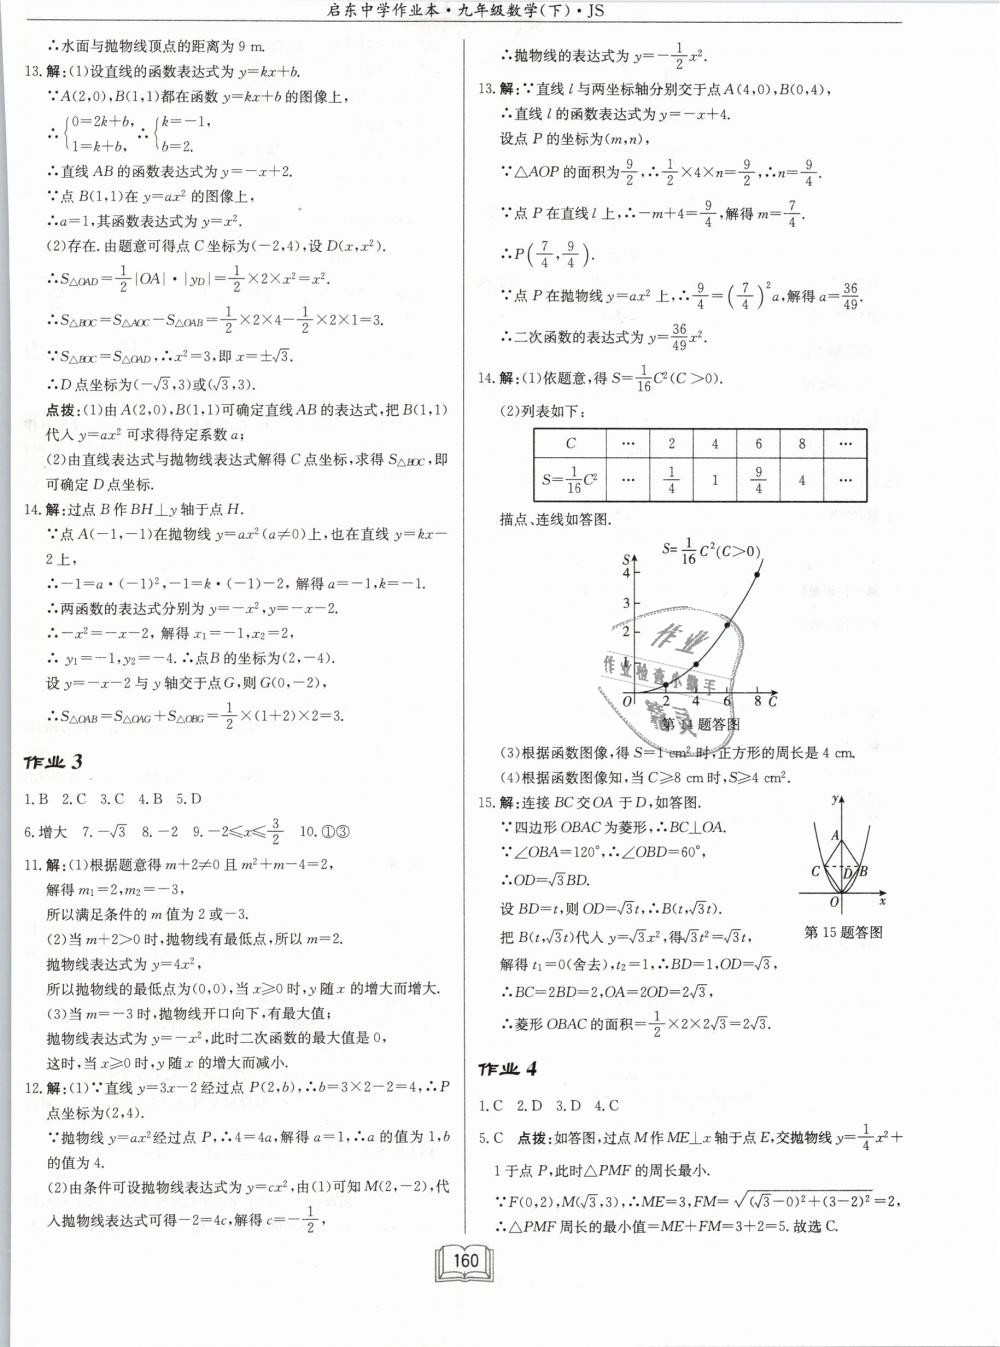 启东中学作业本·九年级数学(下)·JS
∴水面与抛物线顶点的距离为 9 m.
13. 解:(1)设直线的函数表达式为 y=kx+b.
∵A(2,0),B(1,1)都在函数 y=kx+b 的图像上,
∴{0=2k+b, 1=k+b, ∴{k=-1, b=2.
∴直线 AB 的函数表达式为 y=-x+2.
∵点 B(1,1)在 y=ax² 的图像上,
∴a=1,其函数表达式为 y=x².
(2)存在. 由题意可得点 C 坐标为(-2,4),设 D(x,x²).
∴S△OAD=1/2|OA|·|yD|=1/2×2×x²=x².
∴S△BOC=S△AOC-S△OAB=1/2×2×4-1/2×2×1=3.
∵S△BOC=S△OAD,∴x²=3,即 x=±√3.
∴D 点坐标为(-√3,3)或(√3,3).
点拨:(1)由 A(2,0),B(1,1)可确定直线 AB 的表达式,把 B(1,1)
代入 y=ax² 可求得待定系数 a;
(2)由直线表达式与抛物线表达式解得 C 点坐标,求得 S△BOC,即
可确定 D 点坐标.
14. 解:过点 B 作 BH⊥y 轴于点 H.
∵点 A(-1,-1)在抛物线 y=ax²(a≠0)上,也在直线 y=kx-
2 上,
∴-1=a·(-1)²,-1=k·(-1)-2, 解得 a=-1,k=-1.
∴两函数的表达式分别为 y=-x²,y=-x-2.
∴-x²=-x-2, 解得 x₁=-1,x₂=2,
∴ y₁=-1,y₂=-4. ∴点 B 的坐标为(2,-4).
设 y=-x-2 与 y 轴交于点 G,则 G(0,-2),
∴S△OAB=S△OAG+S△OBG=1/2×(1+2)×2=3.
作业 3
1. B 2. C 3. C 4. B 5. D
6. 增大 7. -√3 8. -2 9. -2≤x≤3/2 10. ①③
11. 解:(1)根据题意得 m+2≠0 且 m²+m-4=2,
解得 m₁=2,m₂=-3,
所以满足条件的 m 值为 2 或-3.
(2)当 m+2>0 时,抛物线有最低点,所以 m=2.
抛物线表达式为 y=4x²,
所以抛物线的最低点为(0,0),当 x≥0 时,y 随 x 的增大而增大.
(3)当 m=-3 时,抛物线开口向下,有最大值;
抛物线表达式为 y=-x²,此时二次函数的最大值是 0,
这时,当 x≥0 时,y 随 x 的增大而减小.
12. 解:(1)∵直线 y=3x-2 经过点 P(2,b),∴b=3×2-2=4,∴P
点坐标为(2,4).
∵抛物线 y=ax² 经过点 P,∴4=4a,解得 a=1,∴a 的值为 1,b
的值为 4.
(2)由条件可设抛物线表达式为 y=cx²,由(1)可知 M(2,-2),代
入抛物线表达式可得-2=4c,解得 c=-1/2,
∴抛物线的表达式为 y=-1/2x².
13. 解:∵直线 l 与两坐标轴分别交于点 A(4,0),B(0,4),
∴直线 l 的函数表达式为 y=-x+4.
设点 P 的坐标为(m,n),
∵△AOP 的面积为9/2,∴1/2×4×n=9/2,∴n=9/4.
∵点 P 在直线 l 上,∴-m+4=9/4,解得 m=7/4.
∴P(7/4,9/4).
∵点 P 在抛物线 y=ax² 上,∴9/4=(7/4)²a,解得 a=36/49.
∴二次函数的表达式为 y=36/49x².
14. 解:(1)依题意,得 S=1/16C²(C>0).
(2)列表如下:
C … 2 4 6 8 …
S=1/16C² … 1/4 1 9/4 4 …
描点、连线如答图.
S S=1/16C²(C>0)
4
3
2
1
O 2 4 6 8 C
作业
作业检查小帮手
精灵
第 14 题答图
(3)根据函数图像,得 S=1 cm² 时,正方形的周长是 4 cm.
(4)根据函数图像知,当 C≥8 cm 时,S≥4 cm².
15. 解:连接 BC 交 OA 于 D,如答图.
∵四边形 OBAC 为菱形,∴BC⊥OA.
∵∠OBA=120°,∴∠OBD=60°,
∴OD=√3BD.
设 BD=t,则 OD=√3t,∴B(t,√3t).
把 B(t,√3t)代入 y=√3x²,得√3t²=√3t,
解得 t₁=0(舍去),t₂=1,∴BD=1,OD=√3,
∴BC=2BD=2,OA=2OD=2√3,
∴菱形 OBAC 的面积=1/2×2×2√3=2√3.
y
A
C D B
O x
第 15 题答图
作业 4
1. C 2. D 3. D 4. C
5. C 点拨:如答图,过点 M 作 ME⊥x 轴于点 E,交抛物线 y=1/4x²+
1 于点 P,此时△PMF 的周长最小.
∵F(0,2),M(√3,3),∴ME=3,FM=√((√3-0)²+(3-2)²)=2,
∴△PMF 周长的最小值=ME+FM=3+2=5. 故选 C.
160